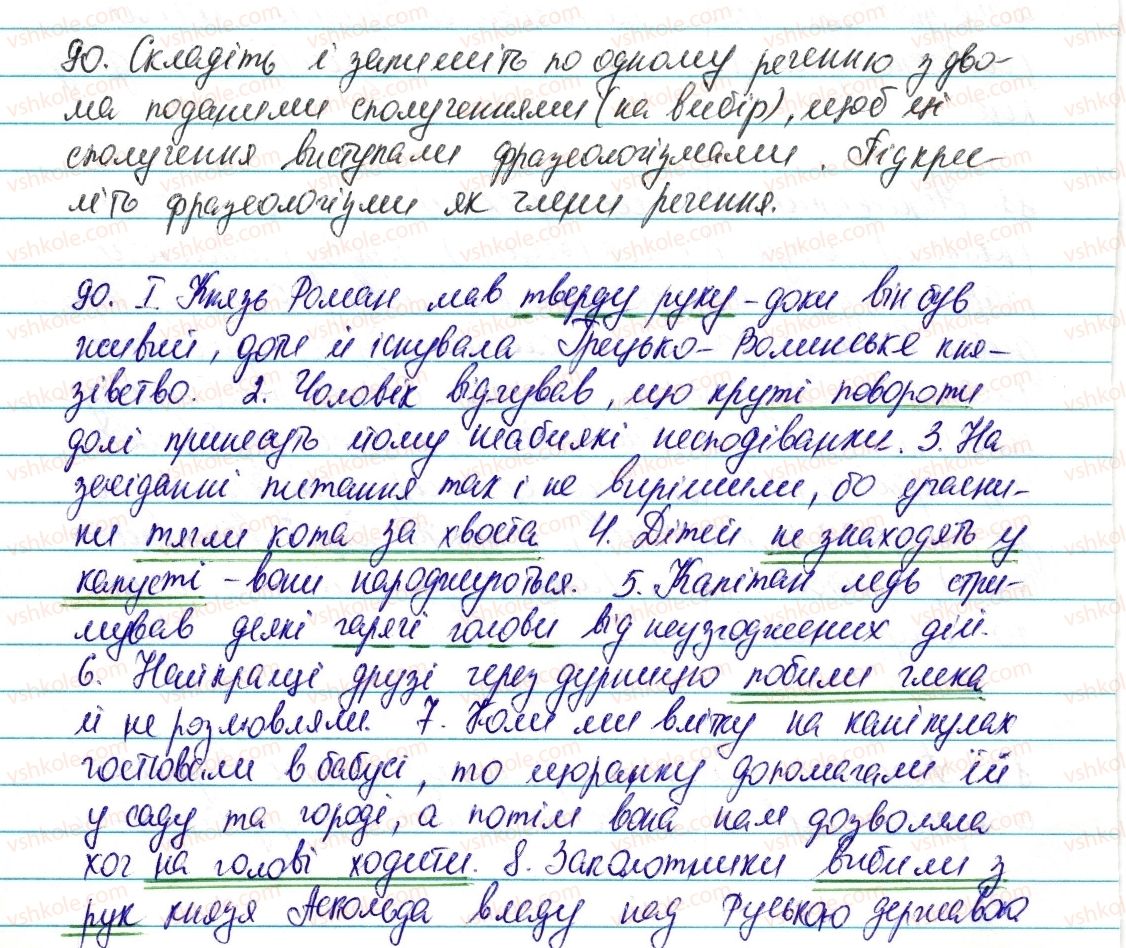 90. Складіть і запишіть по одному реченню з дво-
ма поданими сполученнями (на вибір), щоб ці
сполучення виступали фразеологізмами. Підкрес-
літь фразеологізми як члени речення.
90. I. Князь Роман мав тверду руку - доки він був
живий, доти й існувала Грецько-Волинське кня-
зівство. 2. Чоловік відчував, що круті повороти
долі принесуть йому неабиякі несподіванки. 3. На
засіданні питання так і не вирішили, бо учасни-
ки тягли кота за хвоста 4. Дітей не знаходять у
капусті - вони народжуються. 5. Капітан ледь стри-
мував деякі гарячі голови від неузгоджених дій.
6. Найкращі друзі через дурницю побили глека
й не розмовляли. 7. Коли ми влітку на канікулах
гостювали в бабусі, то щоранку допомагали їй
у саду та городі, а потім вона нам дозволяла
хоч на голові ходити. 8. Заколотники вибили з
рук князя Аскольда владу над Руською державою